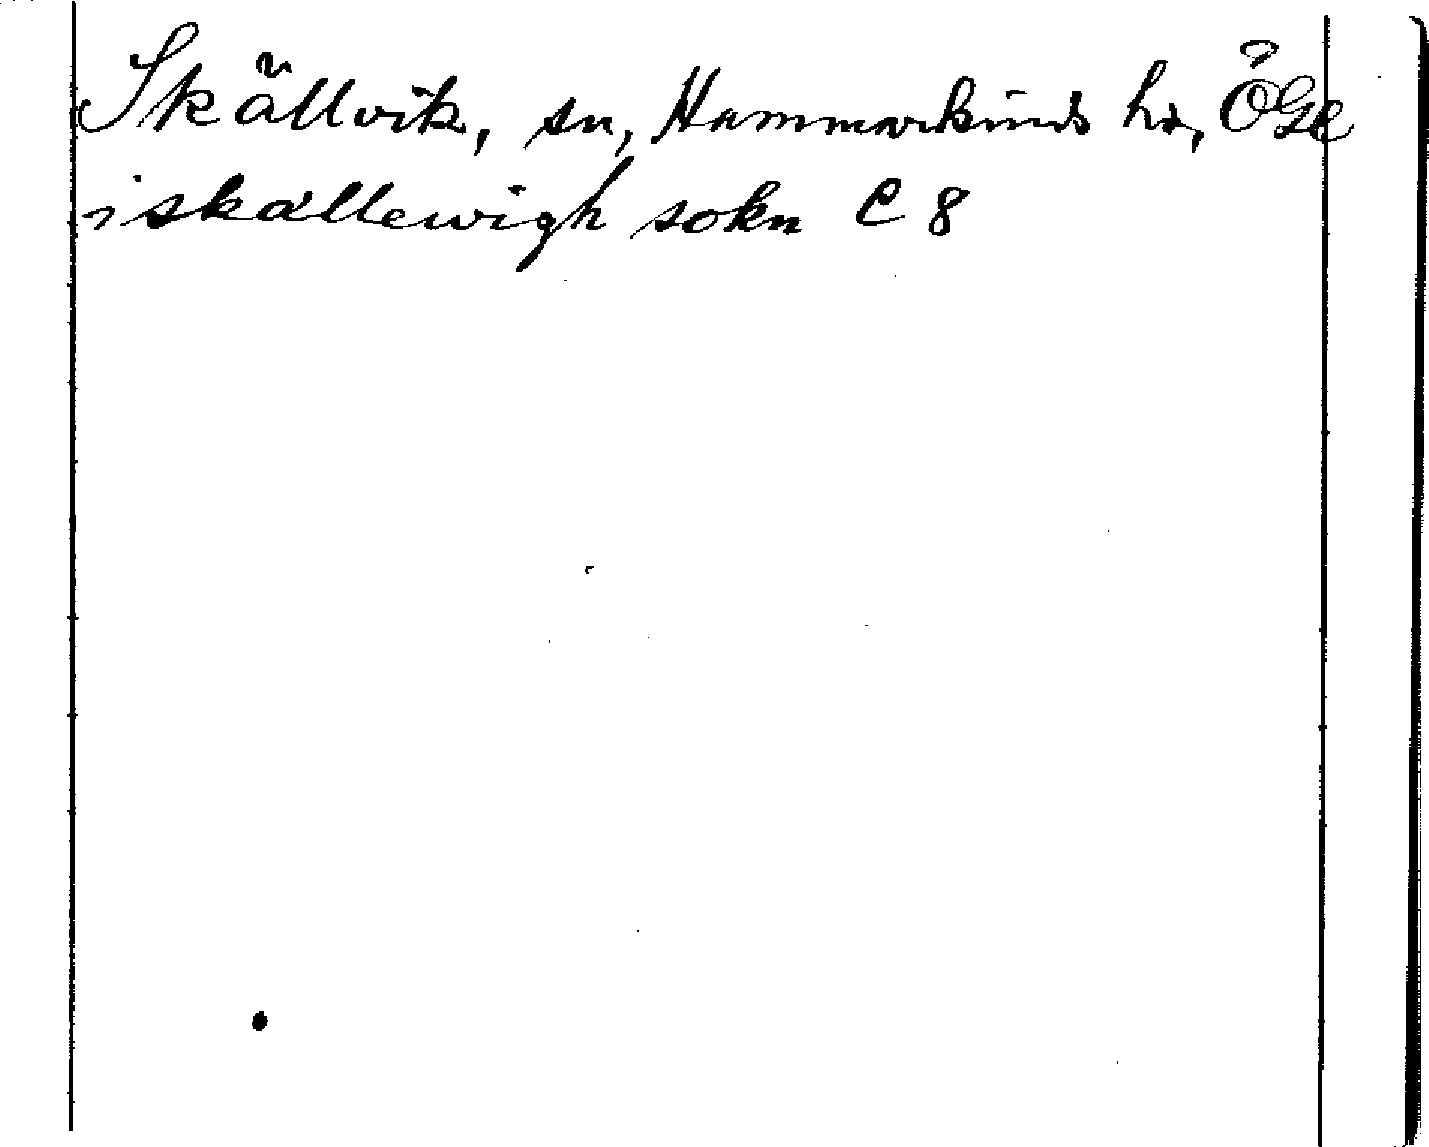 Skällvik, sn, Hammarkinds hd, ÖGe
i skallewigh sokn C 8